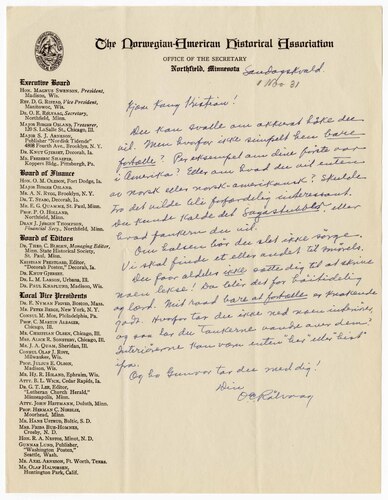 The Norwegian-American Historical Association
OFFICE OF THE SECRETARY
Northfield, Minnesota
Executive Board
HON. MAGNUS SWENSON, President,
Madison, Wis.
REV. D. G. RISTAD, Vice President,
Manitowoc, Wis.
DR. O. E. RØLVAAG, Secretary,
Northfield, Minn.
MAJOR BIRGER OSLAND, Treasurer,
120 S. LaSalle St., Chicago, Ill.
MAJOR S. J. ARNESEN,
Publisher "Nordisk Tidende"
4808 Fourth Ave., Brooklyn, N. Y.
DR. KNUT GJERSET, Decorah, Ia.
MR. FREDERIC SCHAEFER,
Koppers Bldg., Pittsburgh, Pa.
Board of Finance
HON. O. M. OLESON, Fort Dodge, Ia.
MAJOR BIRGER OSLAND.
MR. A. N. RYGG, Brooklyn, N. Y.
DR. T. STABO, Decorah, Ia.
MR. E. G. QUAMME, St. Paul, Minn.
PROF. P. O. HOLLAND,
Northfield, Minn.
DEAN J. JØRGEN THOMPSON,
Financial Secy., Northfield, Minn.
Board of Editors
DR. THEO. C. BLEGEN, Managing Editor,
Minn. State Historical Society,
St. Paul, Minn.
KRISTIAN PRESTGARD, Editor
"Decorah Posten," Decorah, Ia.
DR. KNUT GJERSET.
DR. L. M. LARSON, Urbana, Ill.
DR. PAUL KNAPLUND, Madison, Wis.
Local Vice Presidents
DR. E. NYMAN FIGVED, Boston, Mass.
MR. PETER BERGE, New York, N. Y.
CONSUL M. MOE, Philadelphia, Pa.
PROF. C. MORTEN ALBAGER,
Chicago, Ill.
MR. CHRISTIAN OLSEN, Chicago, Ill.
MRS. ALICE R. SONDERBY, Chicago, Ill.
MR. J. A. QUAM, Sheridan, Ill.
CONSUL OLAF J. ROVE,
Milwaukee, Wis.
PROF. JULIUS E. OLSON,
Madison, Wis.
MR. HJ. R. HOLAND, Ephraim, Wis.
ATTY. B. L. WICK, Cedar Rapids, Ia.
DR. G. T. LEE, Editor
"Lutheran Church Herald,"
Minneapolis, Minn.
ATTY. JOHN HEITMANN, Duluth, Minn.
PROF. HERMAN C. NORDLIE,
Moorhead, Minn.
MR. HANS USTRUD, Baltic, S. D.
MRS. FRIDA BUE-HOMNES,
Crosby, N. D.
HON. R. A. NESTOS, Minot, N. D.
GUNNAR LUND, Publisher,
"Washington Posten,"
Seattle, Wash.
MR. AXEL ARNESON, Ft. Worth, Texas.
MR. OLAF HALVORSEN,
Huntington Park, Calif.
Søndagskveld.
1 31
Kjære Kristian!
Du kan svalle om akkurat hvad du
vil. Men hvorfor ikke simpelt hen bare
fortelle? For eksempel om dine første år
i Amerika? Eller om hvad du vil enten
av norsk eller norsk-amerikansk?
Tro det vilde bli forferdelig interessant.
Du kunde kalde det Sagastubber eller
hvad fanken du vil.
Om talsen bør du slet ikke sørge.
Vi skal finde et eller andet til morels.
Du får aldeles ikke sætte dig til at skrive
noen lekse! Da blir det for høitidelig
og lærd. Mit råd bare at fortelle er
godt. Hvorfor tar du ikke ned noen interiører,
og så lar du tankerne vandre over dem?
Interiørerne kan være enten her eller hist
fra.
Og la Gunvor ta det med dig!
Din
OE Rølvaag